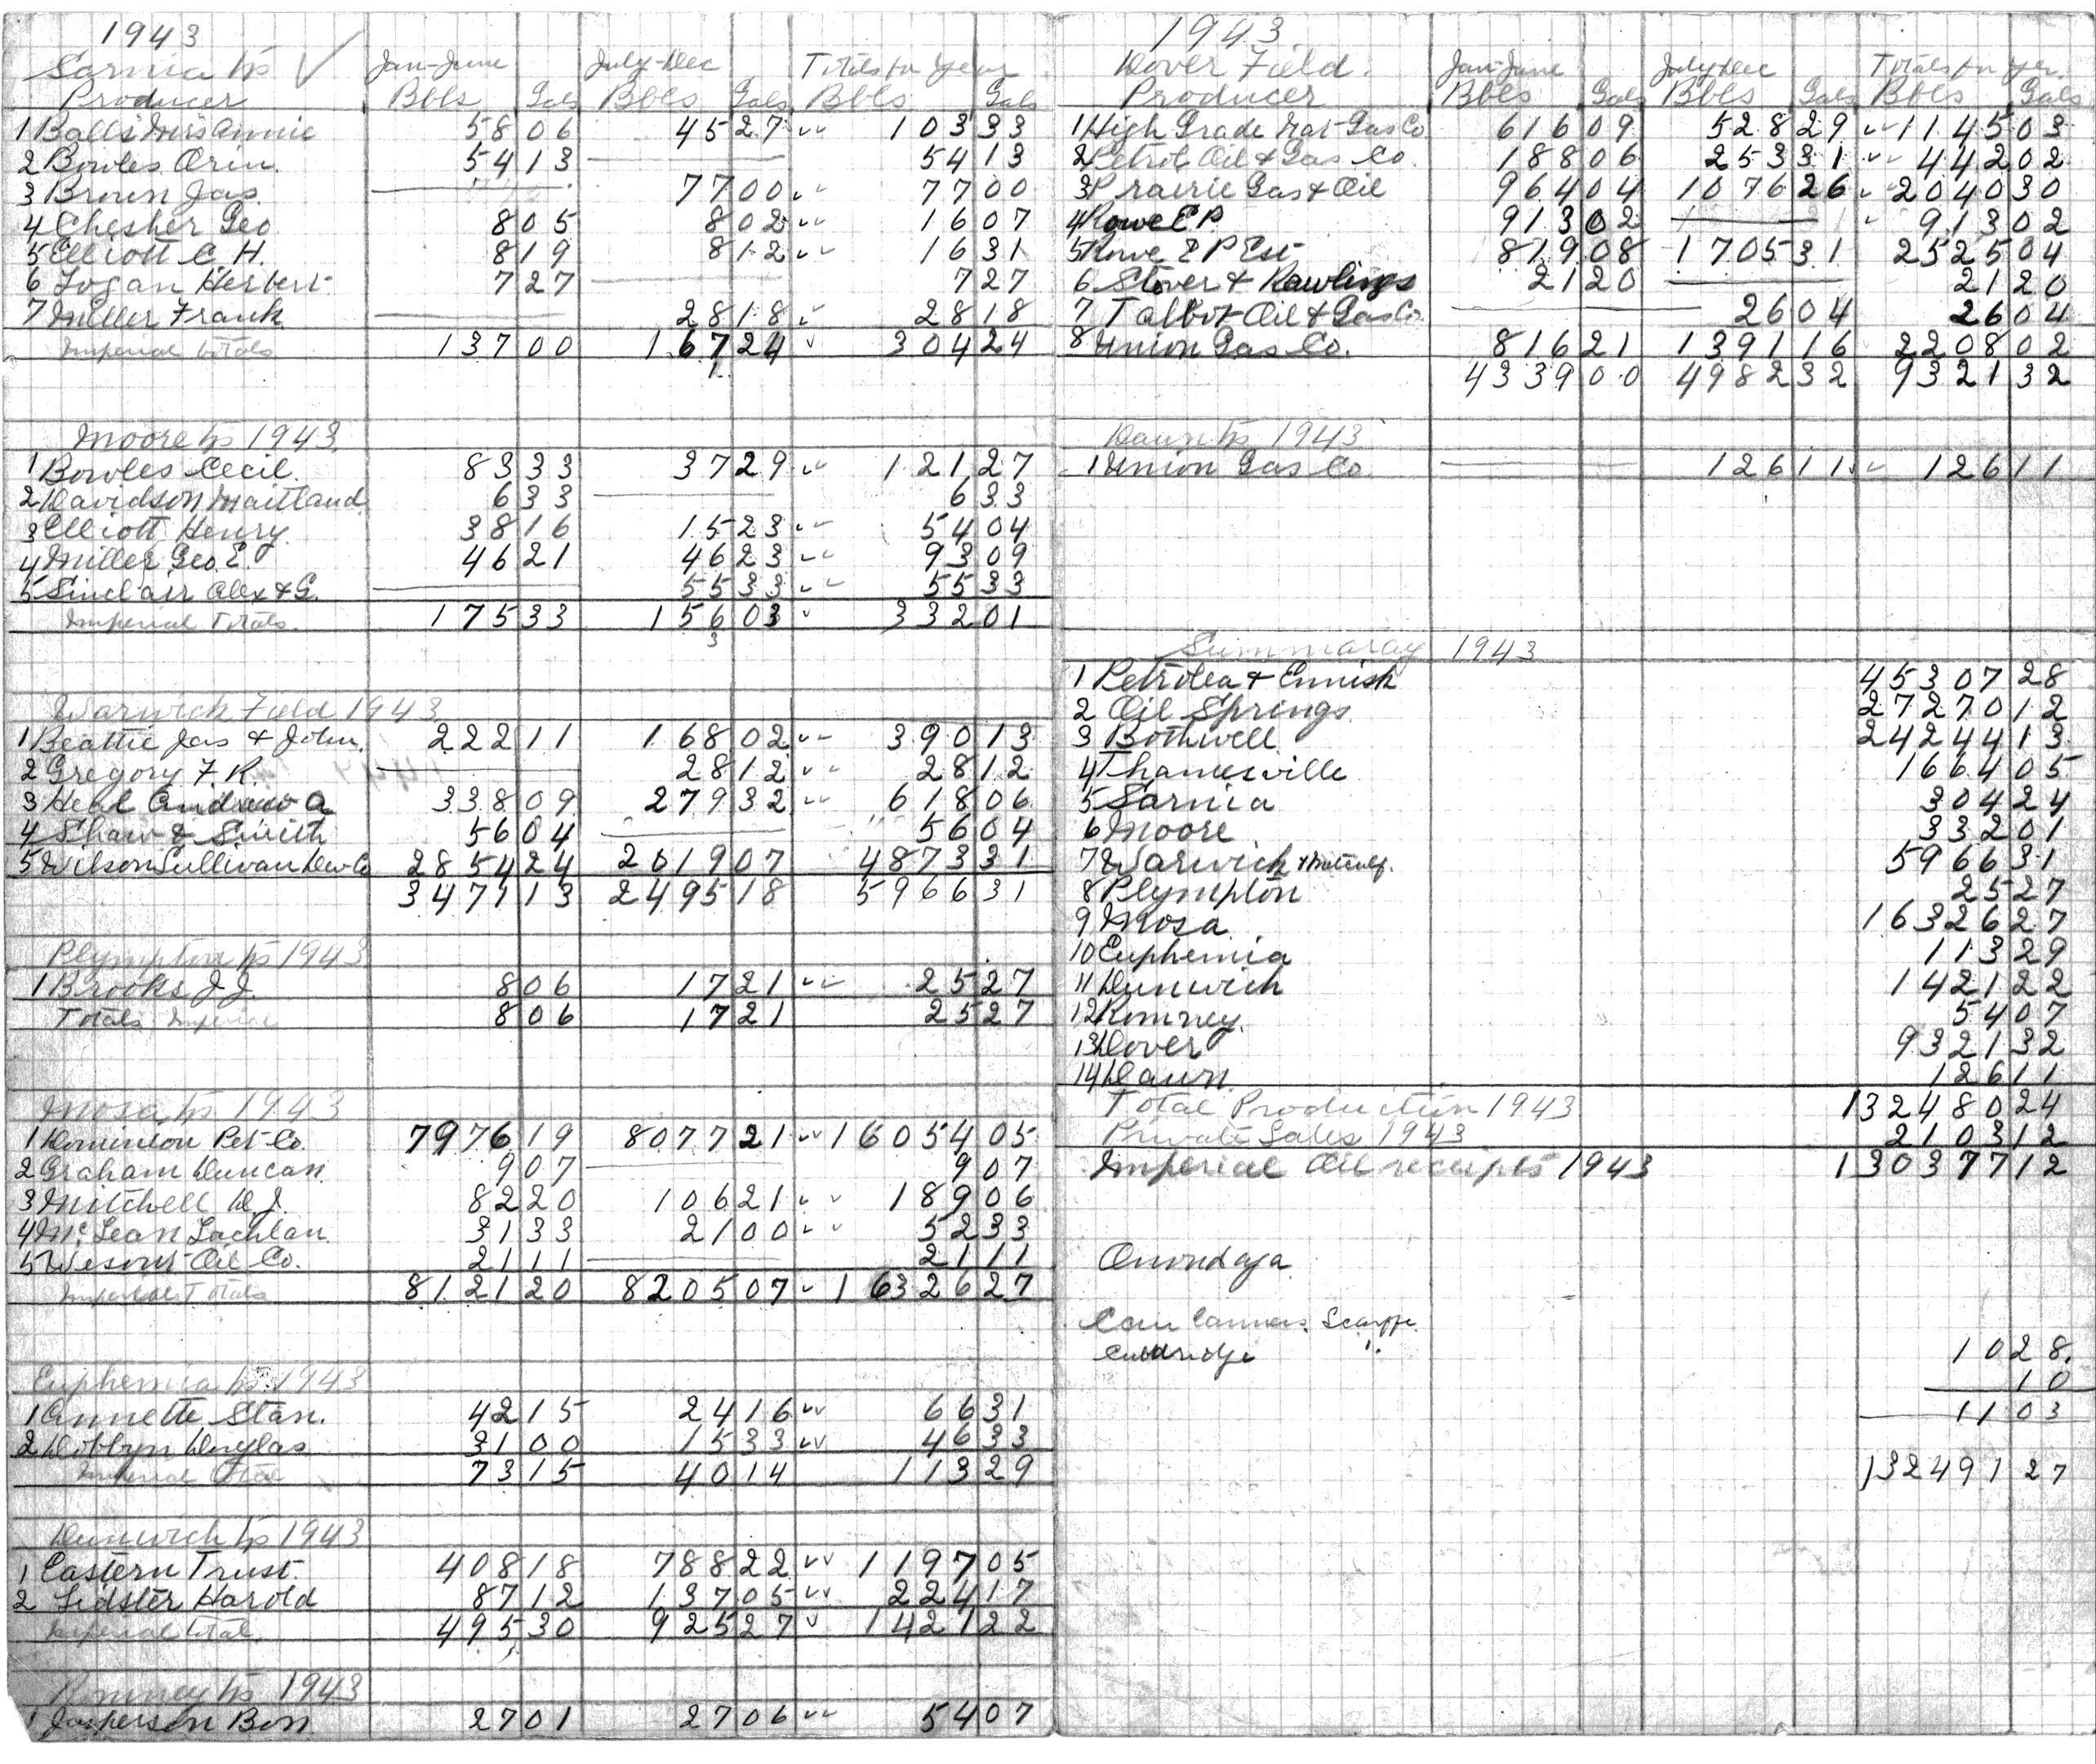 1943
Sarnia tp ✓ Jan-June July-Dec Totals for Year
Producer Bbls Gals Bbls Gals Bbls Gals
1 Balls Mrs Annie 58 06 45 27 103 33
2 Bowles Orin. 54 13 — 54 13
3 Brown Jas — 77 00 77 00
4 Chesher Geo 8 05 8 02 16 07
5 Elliott C. H. 8 19 8 12 16 31
6 Logan Herbert 7 27 — 7 27
7 Miller Frank — 28 18 28 18
Imperial totals 137 00 167 24 304 24
Moore tp 1943
1 Bowles Cecil 83 33 37 29 121 27
2 Davidson Maitland 6 33 — 6 33
3 Elliott Henry 38 16 15 23 54 04
4 Miller Geo. E. 46 21 46 23 93 09
5 Sinclair Alex & G. — 55 33 55 33
Imperial Totals 175 33 156 03 332 01
3
Warwick Field 1943
1 Beattie Jas & John. 222 11 168 02 390 13
2 Gregory F. R. — 28 12 28 12
3 Heal Andrew A 338 09 279 32 618 06
4 Shaw & Smith 56 04 — 56 04
5 Wilson Sullivan Dev Co 2854 24 2019 07 4873 31
3471 13 2495 18 5966 31
Plympton tp 1943
1 Brooks J. J. 8 06 17 21 25 27
Totals Imperial 8 06 17 21 25 27
Mosa tp 1943
1 Dominion Pet Co. 7976 19 8077 21 16054 05
2 Graham Duncan 9 07 — 9 07
3 Mitchell D. J. 82 20 106 21 189 06
4 McLean Lachlan 31 33 21 00 52 33
5 Oil Co. 21 11 — 21 11
Imperial Totals 8121 20 8205 07 16326 27
Euphemia tp 1943
1 Annette Stan. 42 15 24 16 66 31
2 Dobbyn Douglas 31 00 15 33 46 33
Imperial total 73 15 40 14 113 29
Dunwich tp 1943
1 Eastern Trust 408 18 788 22 1197 05
2 Lidster Harold 87 12 137 05 224 17
Imperial total 495 30 925 27 1421 22
Romney tp 1943
1 Jasperson Bon 27 01 27 06 54 07
1943
Dover Field. Jan-June July-Dec Totals for yr.
Producer Bbls Gals Bbls Gals Bbls Gals
1 High Grade Nat Gas Co 616 09 528 29 1145 03
2 Petrol Oil & Gas Co. 188 06 253 31 442 02
3 Prairie Gas & Oil 964 04 1076 26 2040 30
4 Rowe E P 913 02 — 913 02
5 Rowe E P Est 819 08 1705 31 2525 04
6 Stover & Rawlings 21 20 — 21 20
7 Talbot Oil & Gas Co. — 26 04 26 04
8 Union Gas Co. 816 21 1391 16 2208 02
4339 00 4982 32 9321 32
Dawn tp 1943
1 Union Gas Co — 126 11 126 11
Summaray 1943
1 Petrolea & Ennisk 45307 28
2 Oil Springs 27270 12
3 Bothwell 24244 13
4 Thamesville 1664 05
5 Sarnia 304 24
6 Moore 332 01
7 Warwick & Metcalf. 5966 31
8 Plympton 25 27
9 Mosa 16326 27
10 Euphemia 113 29
11 Dunwich 1421 22
12 Romney 54 07
13 Dover 9321 32
14 Dawn. 126 11
Total Production 1943 132480 24
Private Sales 1943 2103 12
Imperial Oil receipts 1943 130377 12
Onondaga
Can Canners. Scarffe.
10 28.
10
11 03
132491 27